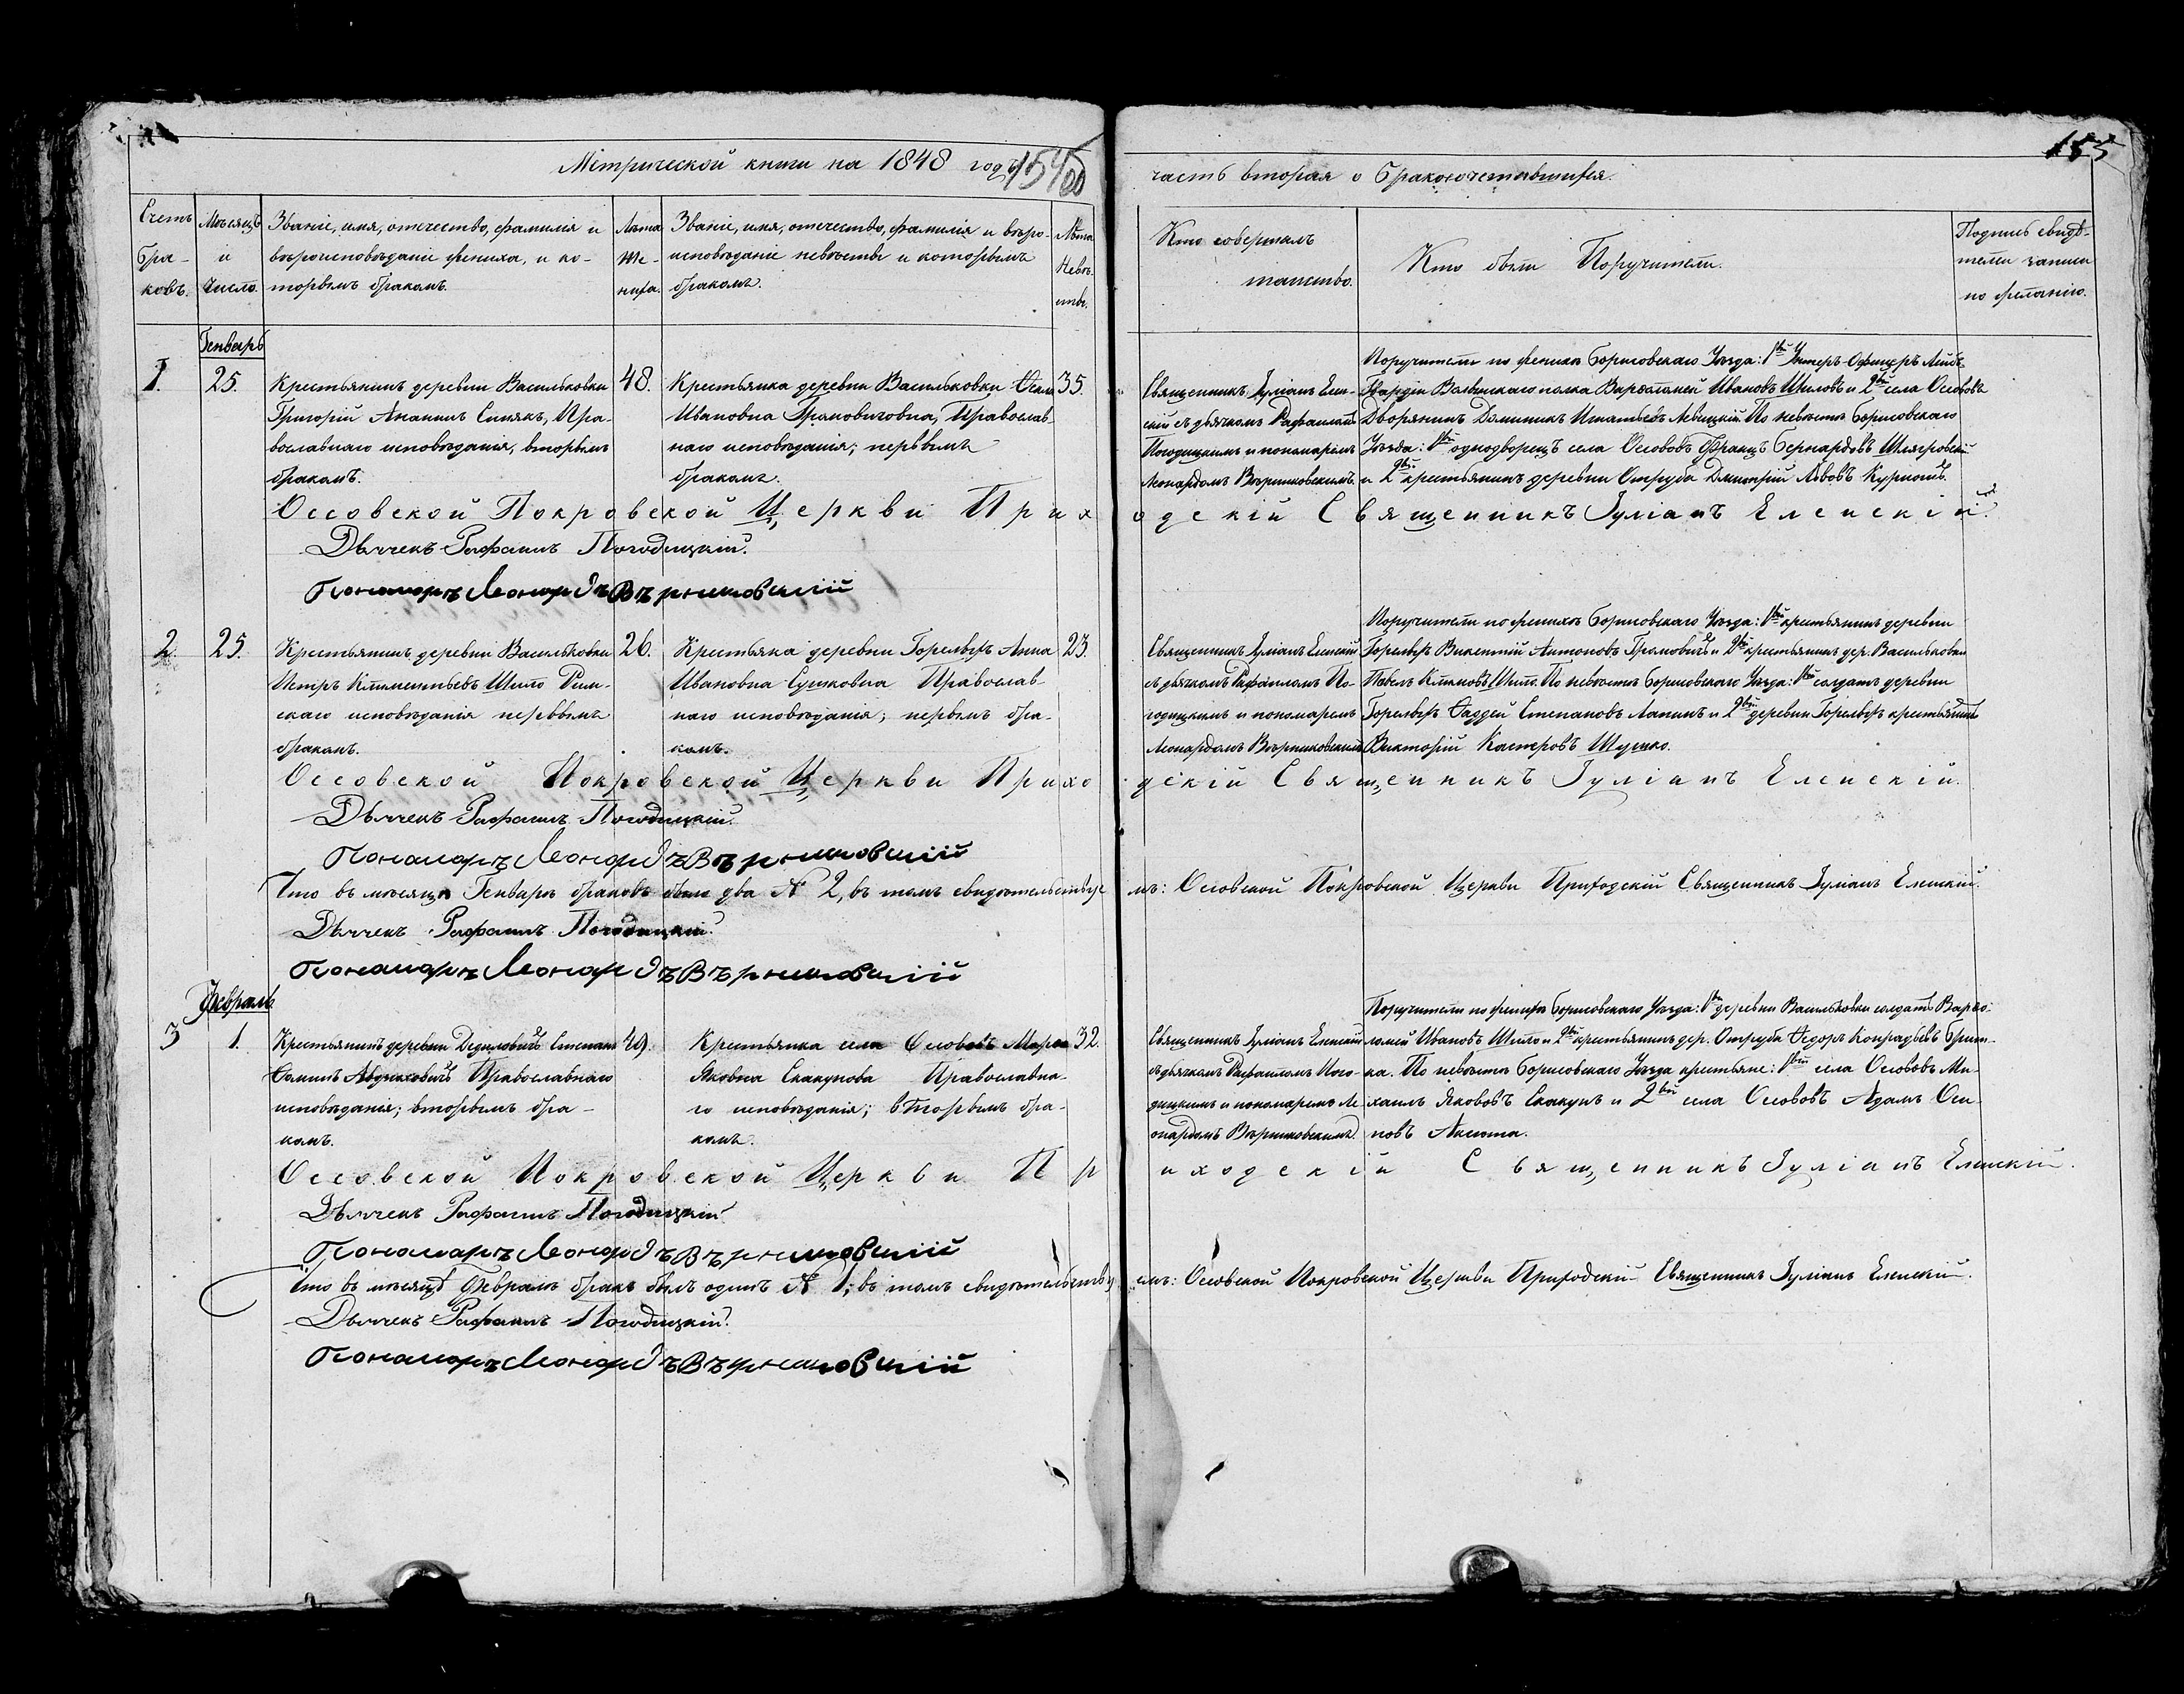 Метрической книги на 1848 годъ
154
часть вторая о бракосочетавшихся.
155
Счетъ браковъ.
Мѣсяцъ и Число.
Званіе, имя, отечество, фамилія и
вѣроисповѣданіе жениха, и ко-
торымъ бракомъ.
Лѣта Же-
ниха.
Званіе, имя, отечество, фамилія и вѣро-
исповѣданіе невѣсты и которымъ
бракомъ.
Лѣта Невѣ-
сты.
Кто совершалъ
таинство.
Кто были Поручители.
Подпись свидѣ-
телей записи
по желанію.
Генварь
1.
25.
Крестьянинъ деревни Васильковки
Григорій Ананьинъ Синякъ, Пра-
вославнаго исповѣданія, вторымъ
бракомъ.
48.
Крестьянка деревни Васильковки
Ивановна Православ-
наго исповѣданія; первымъ
бракомъ.
35.
Священникъ Іуліанъ Елен-
скій съ дьячкомъ Рафаиломъ
Погодицкимъ и пономаремъ
Леонардомъ Вѣрниковскимъ.
Поручители по женихѣ Борисовскаго Уѣзда: 1й Унтеръ-Офицеръ Лейбъ
Гвардіи Волынскаго полка Варѳоломей Ивановъ Шиловъ и 2й села Осововъ
Дворянинъ Доминикъ Игнатьевъ Левицкій. По невѣстѣ Борисовскаго
Уѣзда: 1й однодворецъ села Осововъ Францъ Бернардовъ
и 2й крестьянинъ деревни Отруба Дмитрій Львовъ
Оссовской Покровской Церкви Приходскій Священникъ Іуліанъ Еленскій.
Дьячекъ Рафаилъ Погодицкій.
Пономарь Леонардъ Вѣрниковскій
2.
25.
Крестьянинъ деревни Васильковки
Петръ Климентьевъ Шило Рим-
скаго исповѣданія первымъ
бракомъ.
26.
Крестьяка деревни Горелыхъ Анна
Ивановна Сушковна Православ-
наго исповѣданія; первымъ бра-
комъ.
23.
Священникъ Іуліанъ Еленскій
съ дьячкомъ Рафаиломъ По-
годицкимъ и пономаремъ
Леонардомъ Вѣрниковскимъ
Поручители по женихѣ Борисовскаго Уѣзда: 1й крестьянинъ деревни
Горелыхъ Викентій Антоновъ Громовичъ и 2й крестьянинъ дер. Васильковки
Павелъ Климовъ Шило. По невѣстѣ Борисовскаго Уѣзда: 1й солдатъ деревни
Горелыхъ Фаддей Степановъ Лапинъ и 2й деревни Горелыхъ крестьянинъ
Викторій Касперовъ
Оссовской Покровской Церкви Приходскій Священникъ Іуліанъ Еленскій.
Дьячекъ Рафаилъ Погодицкій.
Пономарь Леонардъ Вѣрниковскій
Что въ мѣсяцѣ Генварѣ браковъ было два № 2, въ томъ свидѣтельствуемъ: Осовской Покровской Церкви Приходскій Священникъ Іуліанъ Еленскій.
Дьячекъ Рафаилъ Погодицкій.
Пономарь Леонардъ Вѣрниковскій
Февраль
3
1.
Крестьянинъ деревни Дедиловичъ Степанъ
Ѳоминъ Православнаго
исповѣданія; вторымъ бра-
комъ.
49.
Крестьянка села Осововъ
Яковна Скакунова Православна-
го исповѣданія; вторымъ бра-
комъ.
32.
Священникъ Іуліанъ Еленскій
съ дьячкомъ Рафаиломъ Пого-
дицкимъ и пономаремъ Ле-
онардомъ Вѣрниковскимъ.
Поручители по женихѣ Борисовскаго Уѣзда: 1й деревни Васильковки солдатъ Варѳо-
ломей Ивановъ Шило и 2й крестьянинъ дер. Отруба Ѳедоръ Кондратьевъ
По невѣстѣ Борисовскаго Уѣзда крестьяне: 1й села Осововъ Ми-
хаилъ Якововъ Скакунъ и 2й села Осововъ Адамъ Оси-
повъ Аксюта.
Оссовской Покровской Церкви Приходскій Священникъ Іуліанъ Еленскій.
Дьячекъ Рафаилъ Погодицкій
Пономарь Леонардъ Вѣрниковскій
Что въ мѣсяцѣ Февралѣ бракъ былъ одинъ № 1; въ томъ свидѣтельствуемъ: Осовской Покровской Церкви Приходскій Священникъ Іуліанъ Еленскій.
Дьячекъ Рафаилъ Погодицкій.
Пономарь Леонардъ Вѣрниковскій